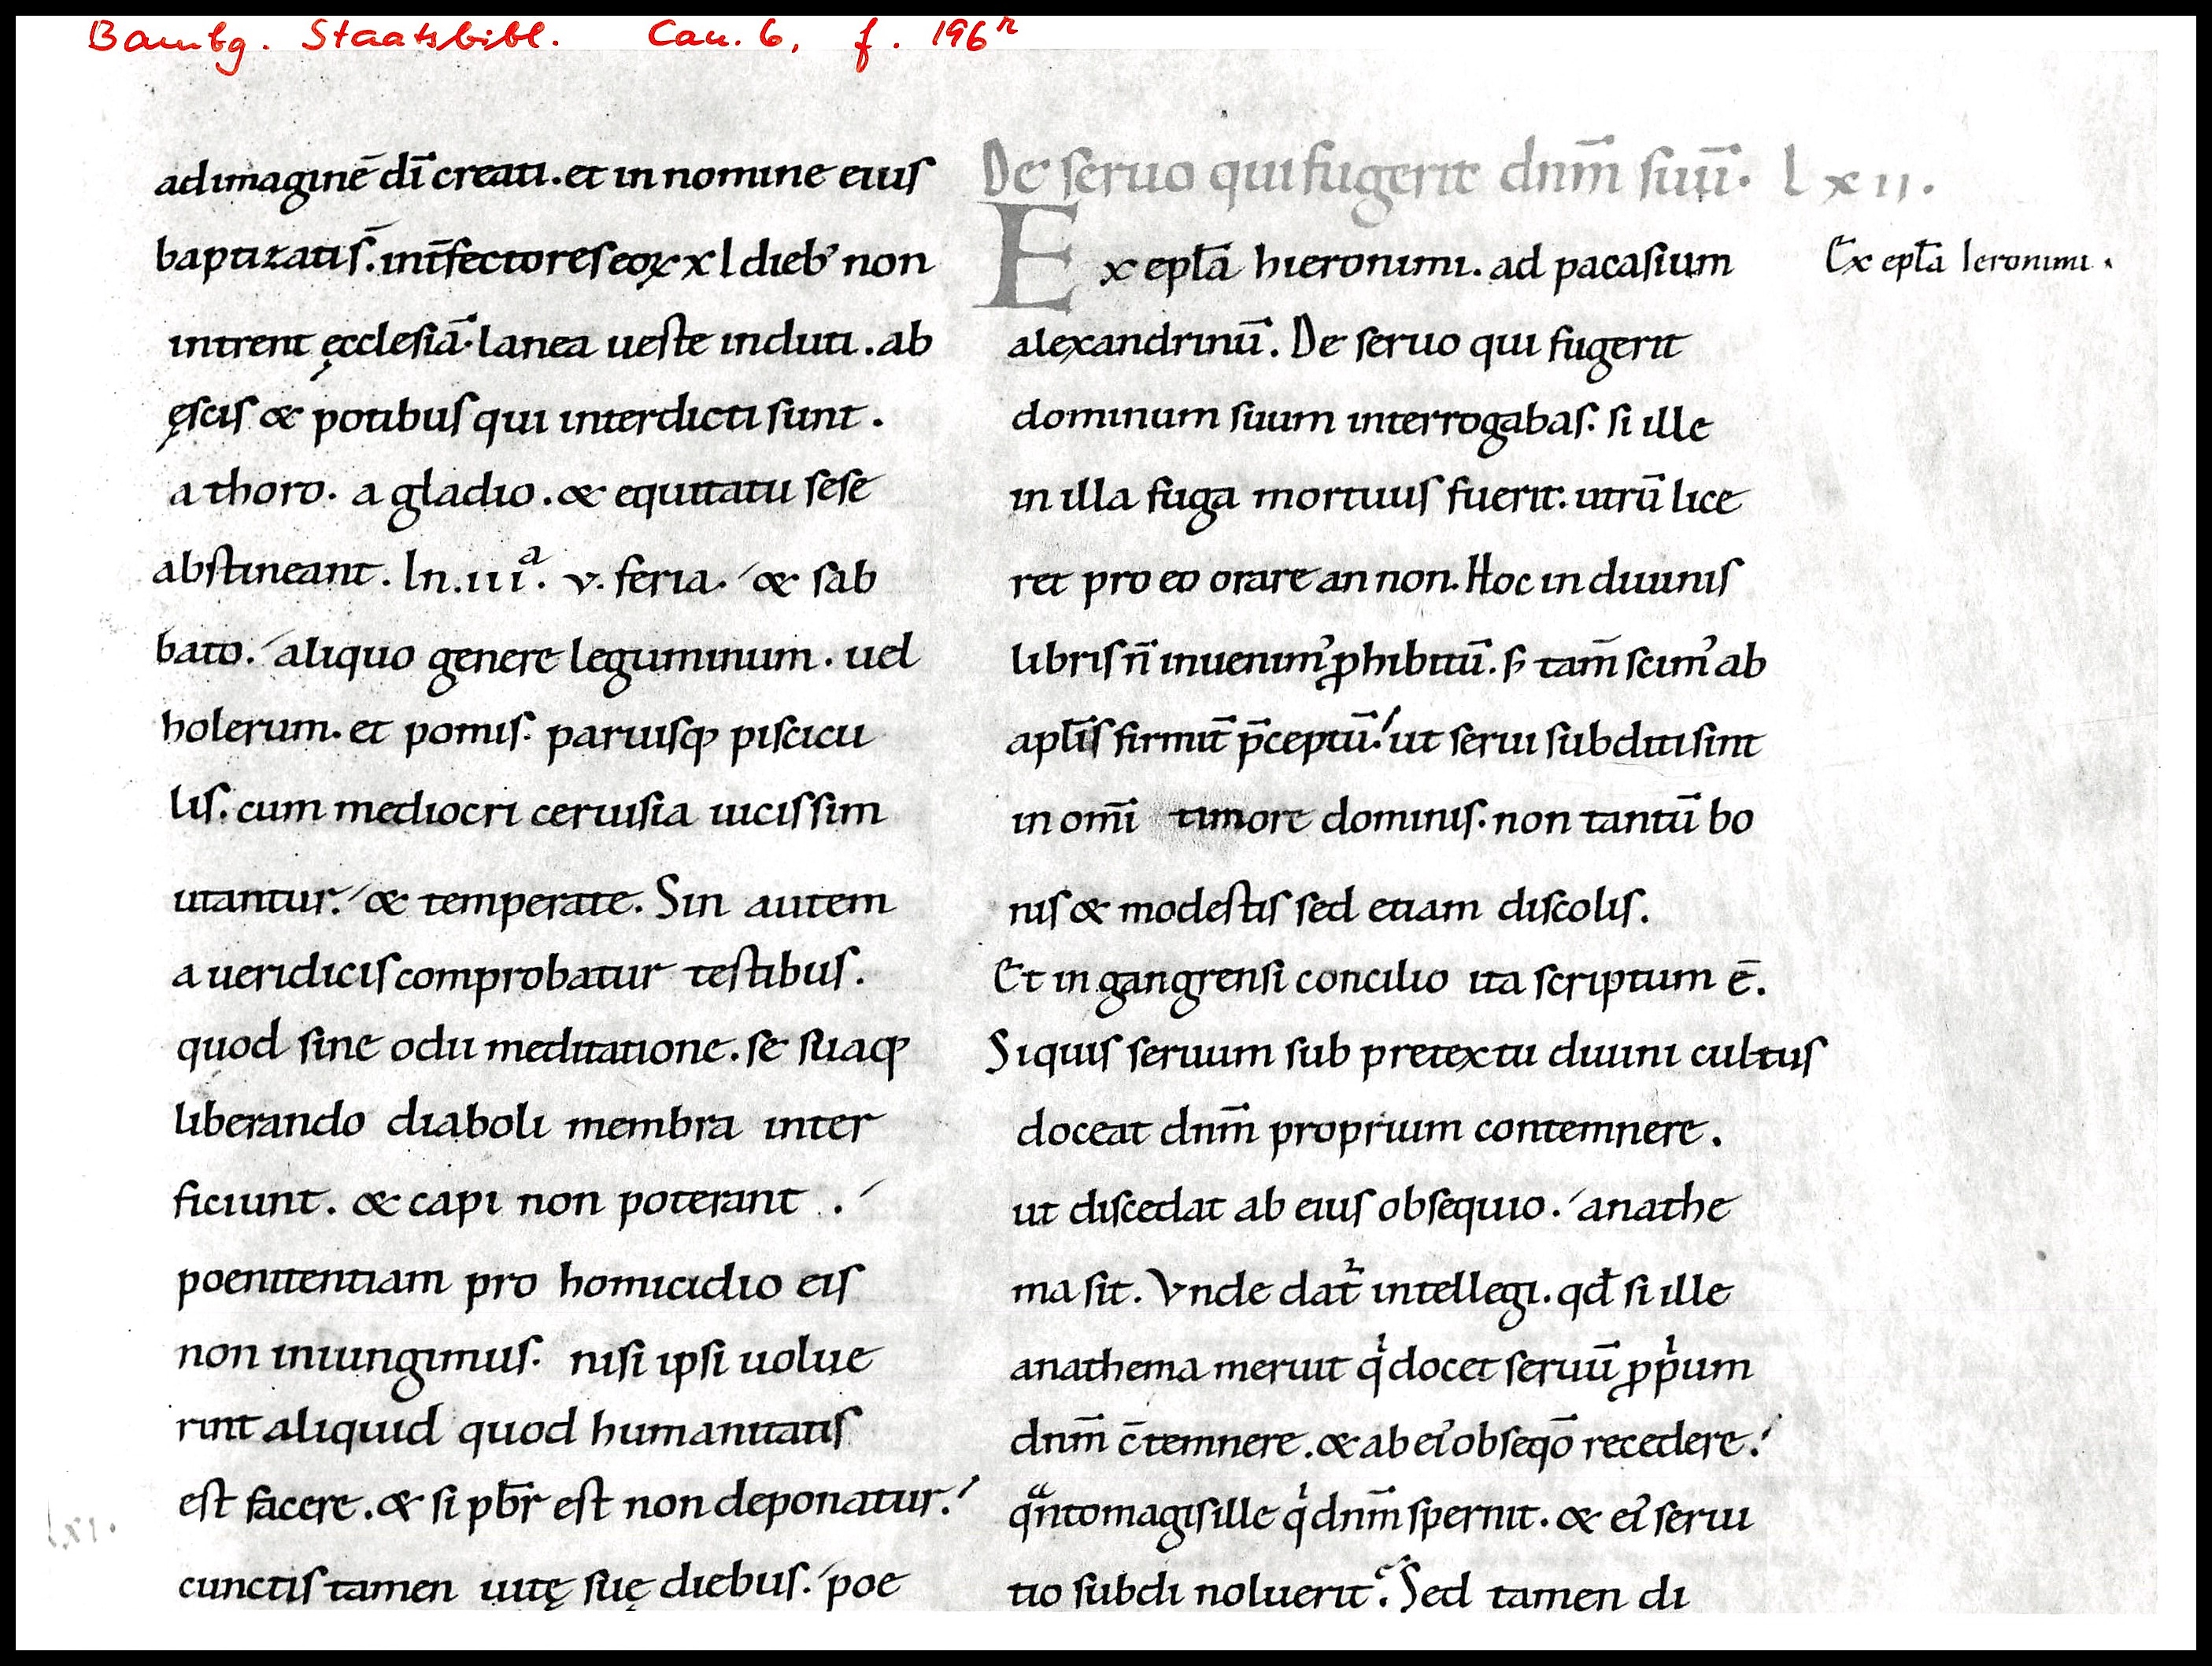 Bambg. Staatsbibl. Can. 6, f. 196r
ad imaginē dī creati. et in nomine eius
baptizatis. int̄fectores eoꝝ xl dieb' non
intrent ęcclesiā. lanea ueste induti. ab
ęscis & potibus qui interdicti sunt.
a thoro. a gladio. & equitatu sese
abstineant. In. iiiᵃ. v. feria. & sab
bato. aliquo genere leguminum. uel
holerum. et pomis. paruisq; piscicu
lis. cum mediocri ceruisia uicissim
utantur. & temperate. Sin autem
a ueridicis comprobatur testibus.
quod sine odii meditatione. se suaq;
liberando diaboli membra inter
ficiunt. & capi non poterant.
poenitentiam pro homicidio eis
non iniungimus. nisi ipsi uolue
rint aliquid quod humanitatis
est facere. & si pb̄r est non deponatur.
lxi.
cunctis tamen uitę suę diebus. poe
De seruo qui fugerit dnm̄ suū. lxii.
Ex epl̄a hieronimi. ad pacasium
Ex epl̄a Ieronimi.
alexandrinū. De seruo qui fugerit
dominum suum interrogabas. si ille
in illa fuga mortuus fuerit. utrū lice
ret pro eo orare an non. Hoc in diuinis
libris n̄ inuenim' ꝓhibitū. s; tam̄ scim' ab
apl̄is firmit̄ p̄ceptū. ut serui subditi sint
in om̄i timore dominis. non tantū bo
nis & modestis sed etiam discolis.
Et in gangrensi concilio ita scriptum ē.
Siquis seruum sub pretextu diuini cultus
doceat dnm̄ proprium contemnere.
ut discedat ab eius obsequio. anathe
ma sit. Vnde dat̄ intellegi. qđ si ille
anathema meruit qⁱ docet seruū ꝓpⁱum
dnm̄ c̄temnere. & ab ei' obseqō recedere.
qᵃntomagis ille qⁱ dnm̄ spernit. & ei' serui
tio subdi noluerit. Sed tamen di